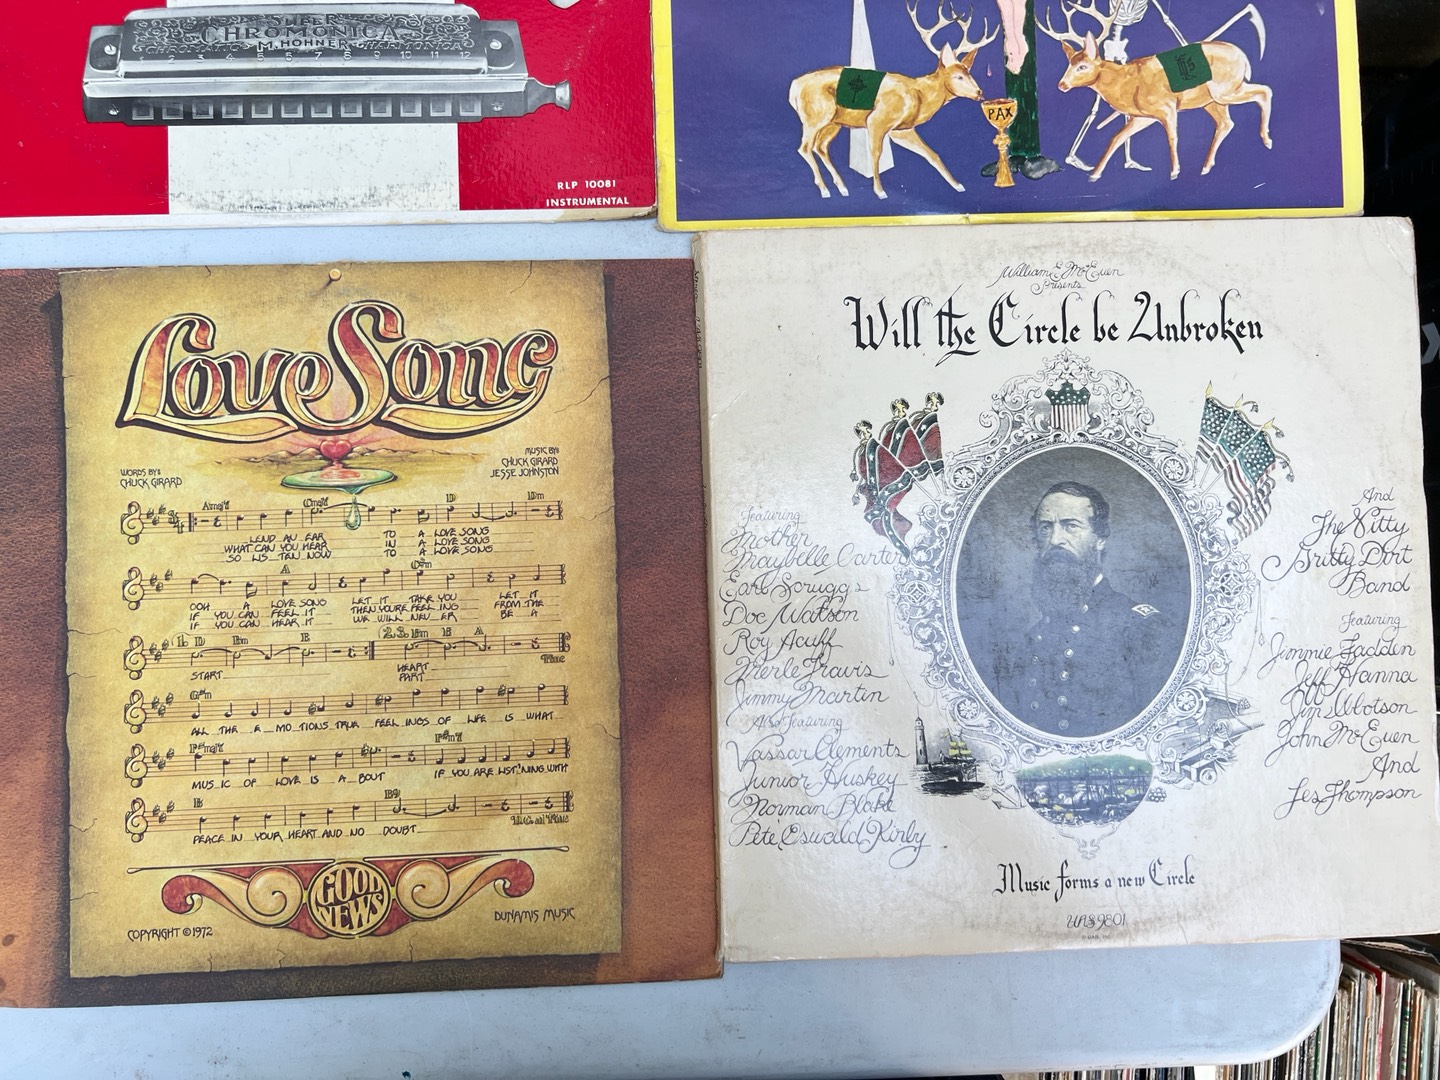 SUPER
CHROMONICA
CHROMATIC M. HOHNER HARMONICA
1 2 3 4 5 6 7 8 9 10 11 12
RLP 10081
INSTRUMENTAL
PAX
Love Song
WORDS BY:
CHUCK GIRARD
MUSIC BY:
CHUCK GIRARD
JESSE JOHNSTON
LEND AN EAR TO A LOVE SONG
WHAT CAN YOU HEAR IN A LOVE SONG
SO LIS-TEN NOW TO A LOVE SONG
OOH A LOVE SONG LET IT TAKE YOU LET IT
IF YOU CAN FEEL IT THEN YOU'RE FEEL-ING FROM THE
IF YOU CAN HEAR IT WE WILL NEV-ER BE A
START
HEART
PART
ALL THE E-MO-TIONS TRUE FEEL-INGS OF LIFE IS WHAT
MUS-IC OF LOVE IS A-BOUT IF YOU ARE LIST'NING WITH
PEACE IN YOUR HEART AND NO DOUBT
GOOD
NEWS
COPYRIGHT © 1972
DUNAMIS MUSIC
William E. McEuen
Presents
Will the Circle be Unbroken
featuring
Mother
Maybelle Carter
Earl Scruggs
Doc Watson
Roy Acuff
Merle Travis
Jimmy Martin
Also featuring
Vassar Clements
Junior Huskey
Norman Blake
Pete Oswald Kirby
And
The Nitty
Gritty Dirt
Band
featuring
Jimmie Fadden
Jeff Hanna
Jim Ibbotson
John McEuen
And
Les Thompson
Music forms a new Circle
UAS9801